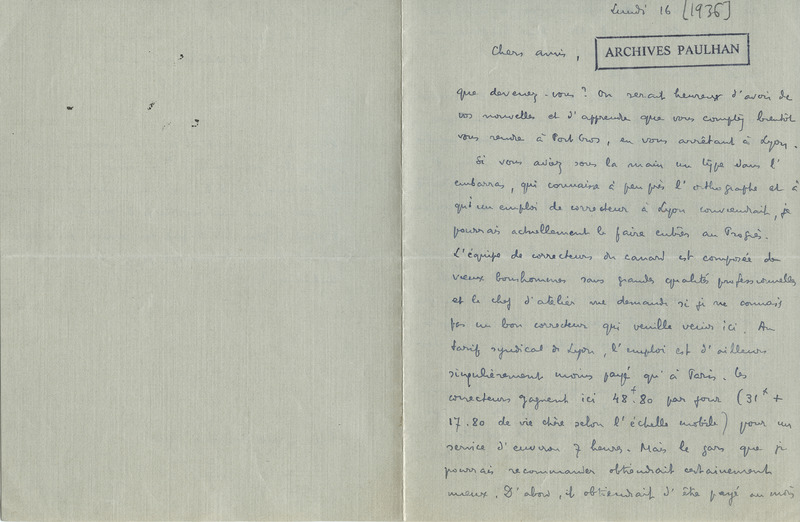 Lundi 16 [1936]
Chers amis,
ARCHIVES PAULHAN
que devenez-vous? On serait heureux d'avoir de
vos nouvelles et d'apprendre que vous comptez bientôt
vous rendre à Port Cros, en vous arrêtant à Lyon.
Si vous aviez sous la main un type dans l'
embarras, qui connaisse à peu près l'orthographe et à
qui un emploi de correcteur à Lyon conviendrait, je
pourrais actuellement le faire entrer au Progrès.
L'équipe de correcteurs du canard est composée de
vieux bonshommes sans grandes qualités professionnelles
et le chef d'atelier me demande si je ne connais
pas un bon correcteur qui veuille venir ici. Au
tarif syndical de Lyon, l'emploi est d'ailleurs
singulièrement moins payé qu'à Paris. Les
correcteurs gagnent ici 48f.80 par jour (31 +
17.80 de vie chère selon l'échelle mobile) pour un
service d'environ 7 heures. Mais le gars que je
pourrais recommander obtiendrait certainement
mieux. D'abord, il obtiendrait d'être payé au mois